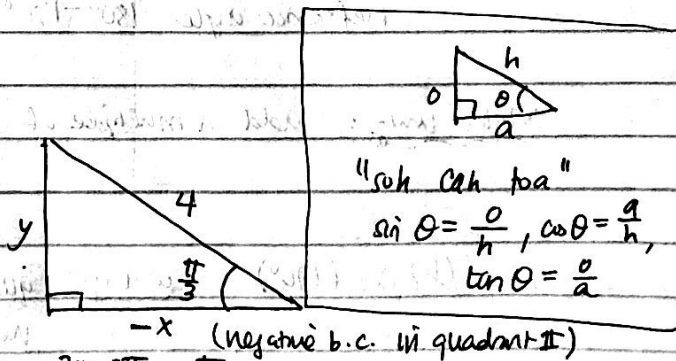 h
o
θ
a
"soh cah toa"
sin θ = o/h, cos θ = a/h,
tan θ = o/a
4
y
π/3
-x
(negative b.c. in quadrant II)